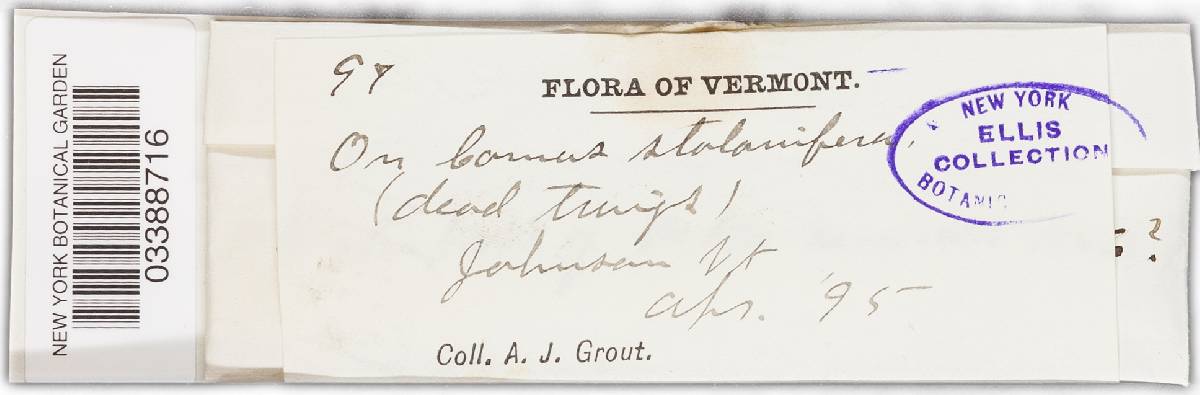 NEW YORK BOTANICAL GARDEN
03388716
97
FLORA OF VERMONT.
On Cornus stolonifera,
(dead twigs)
Johnson Vt
Apr. '95
Coll. A. J. Grout.
NEW YORK
ELLIS
COLLECTION
BOTANIC
?